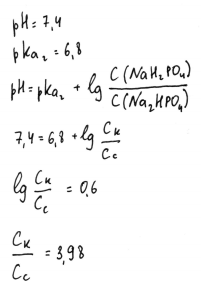 pH=7,4
pKa₂=6,8
pH=pKa₂ + lg C(NaH₂PO₄)/C(Na₂HPO₄)
7,4=6,8+lg Cк/Cс
lg Cк/Cс = 0,6
Cк/Cс = 3,98